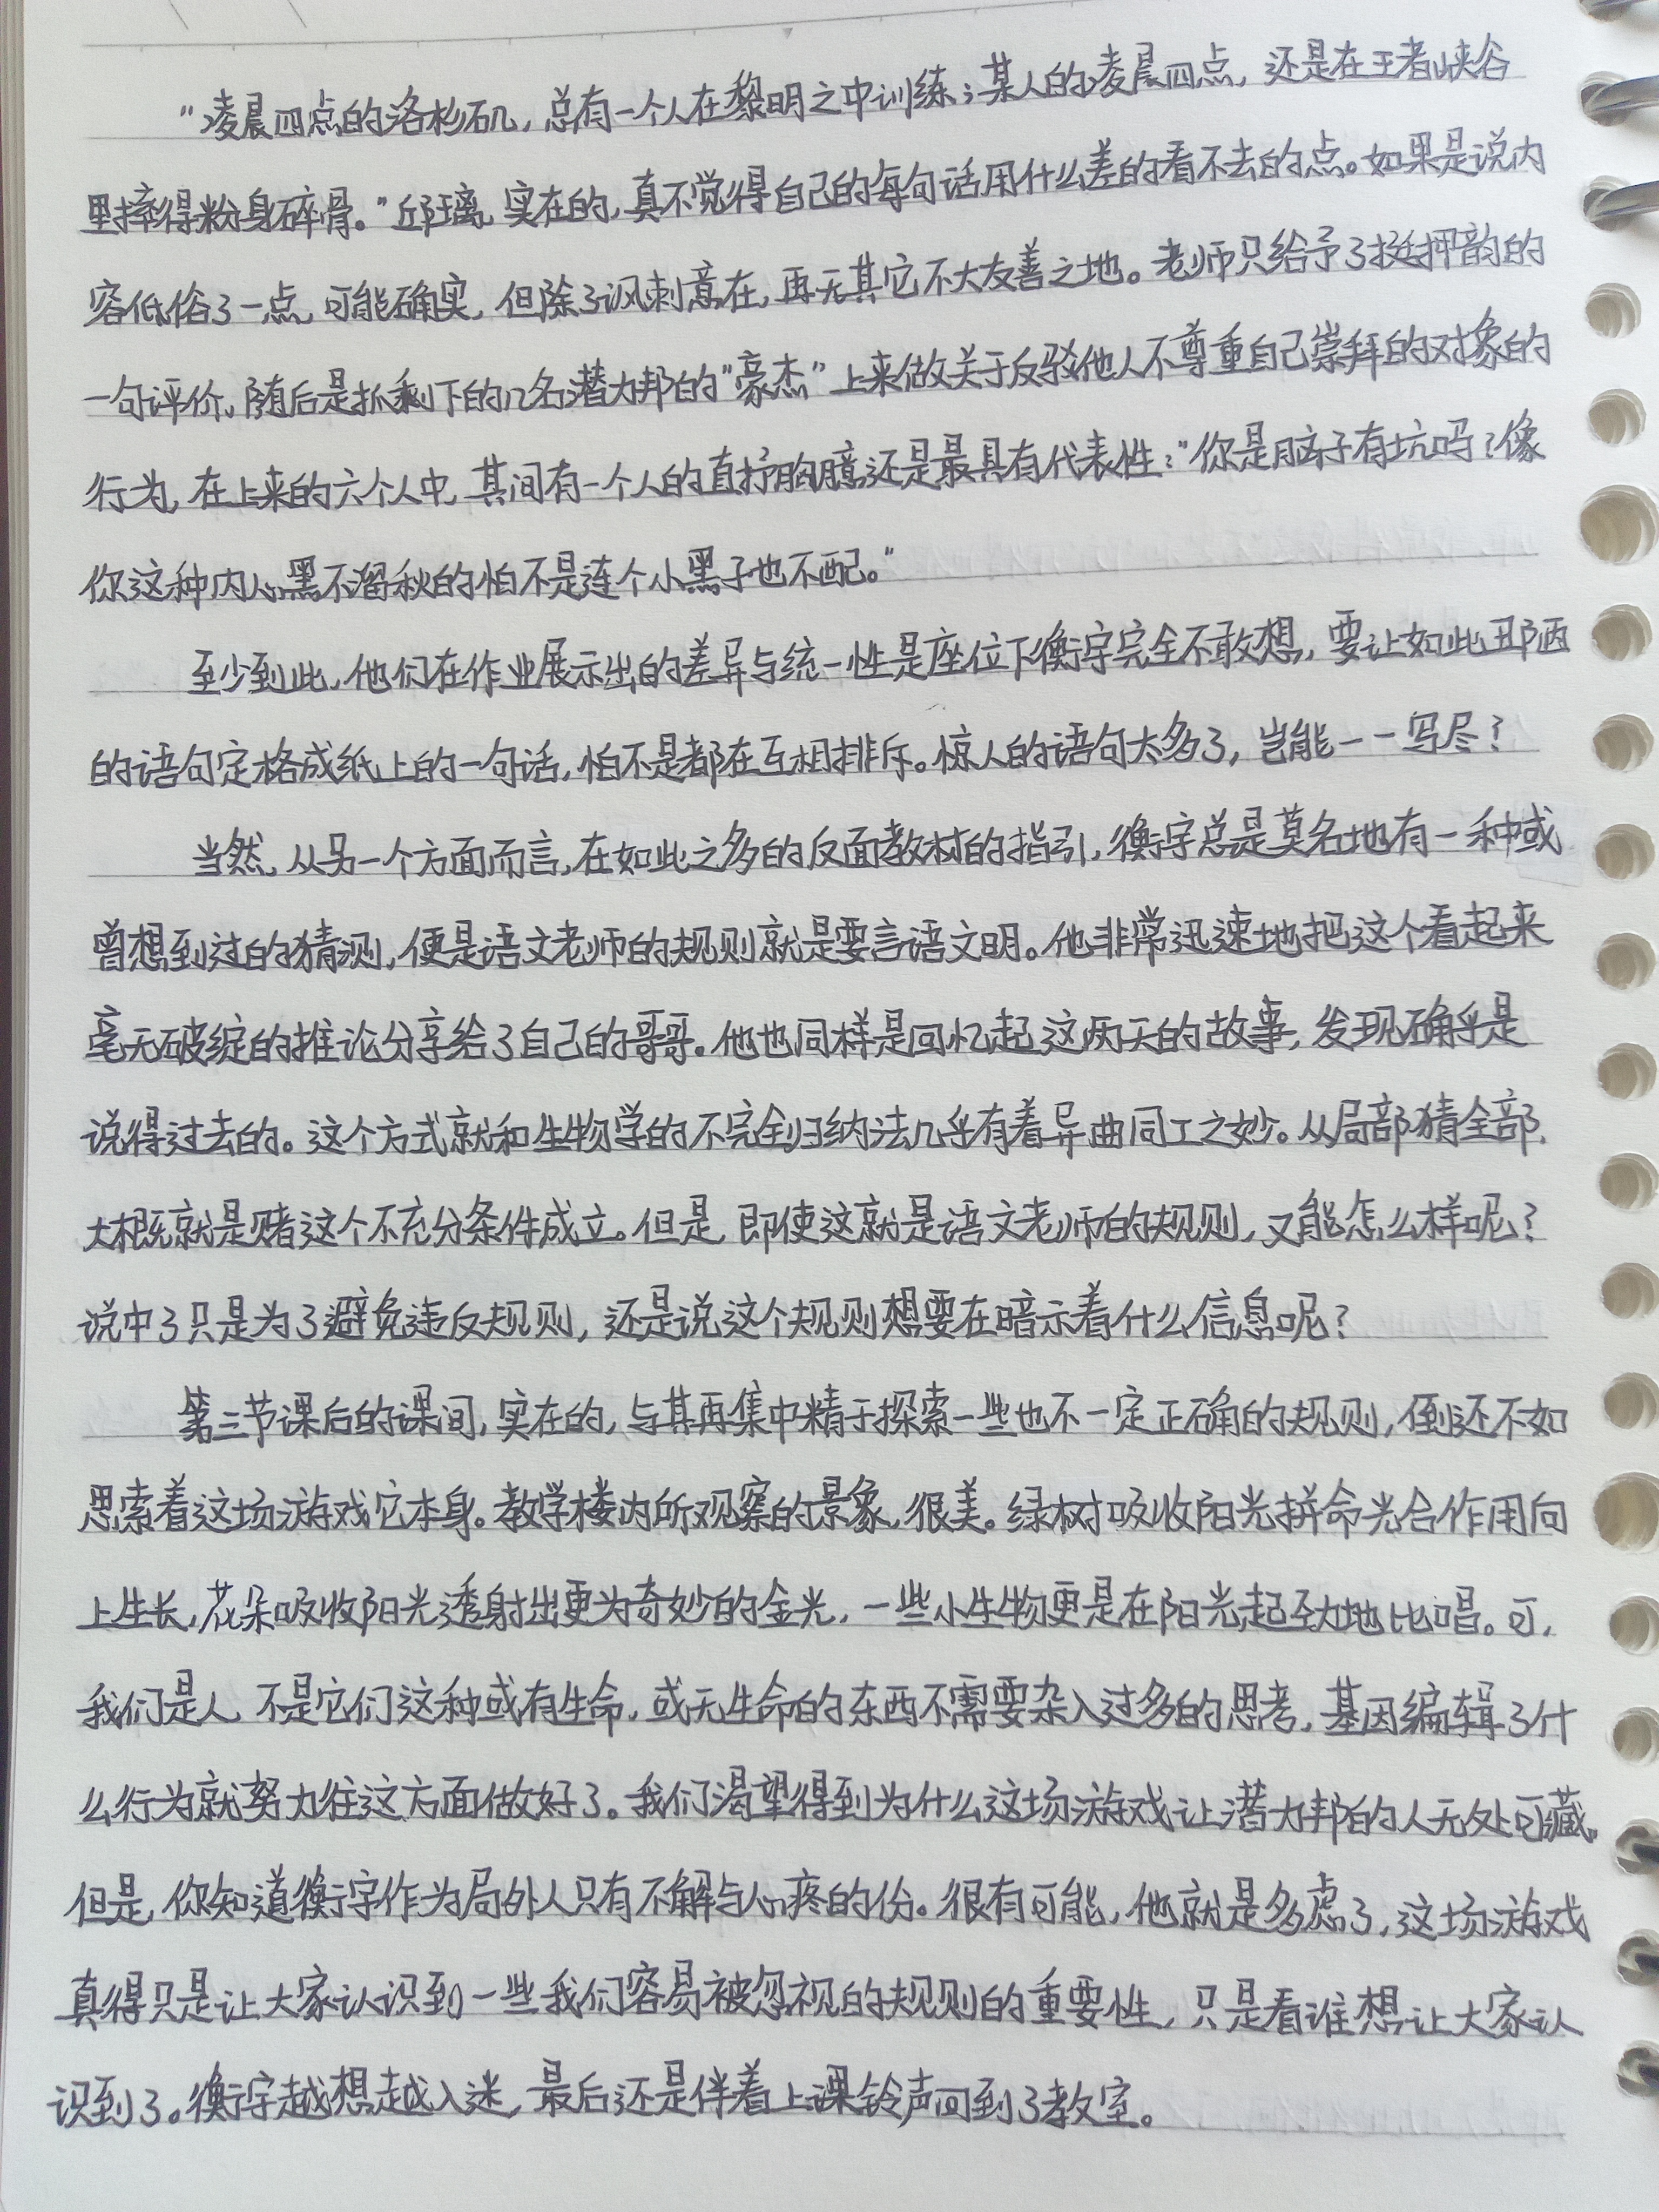 “凌晨四点的洛杉矶，总有一个人在黎明之中训练；某人的凌晨四点，还是在王者峡谷
里摔得粉身碎骨。”邱璃，实在的，真不觉得自己的每句话用什么差的看不去的点。如果是说内
容低俗了一点，可能确实，但除了讽刺意在，再无其它不大友善之地。老师只给予了挺押韵的
一句评价，随后是抓剩下的几名潜力邦的“豪杰”上来做关于反驳他人不尊重自己崇拜的对象的
行为，在上来的六个人中，其间有一个人的直抒胸臆还是最具有代表性：“你是脑子有坑吗？像
你这种内心黑不溜秋的怕不是连个小黑子也不配。”
至少到此，他们在作业展示出的差异与统一性是座位下衡宇完全不敢想，要让如此丑陋
的语句定格成纸上的一句话，怕不是都在互相排斥。惊人的语句太多了，岂能一一写尽？
当然，从另一个方面而言，在如此之多的反面教材的指引，衡宇总是莫名地有一种或
曾想到过的猜测，便是语文老师的规则就是要言语文明。他非常迅速地把这个看起来
毫无破绽的推论分享给了自己的哥哥。他也同样是回忆起这两天的故事，发现确乎是
说得过去的。这个方式就和生物学的不完全归纳法几乎有着异曲同工之妙。从局部猜全部，
大概就是赌这个不充分条件成立。但是，即使这就是语文老师的规则，又能怎么样呢？
说中了只是为了避免违反规则，还是说这个规则想要在暗示着什么信息呢？
第三节课后的课间，实在的，与其再集中精于探索一些也不一定正确的规则，倒还不如
思索着这场游戏它本身。教学楼内所观察的景象，很美。绿树吸收阳光拼命光合作用向
上生长，花朵吸收阳光透射出更为奇妙的金光，一些小生物更是在阳光起劲地比唱。可，
我们是人，不是它们这种或有生命，或无生命的东西不需要杂入过多的思考，基因编辑了什
么行为就努力往这方面做好了。我们渴望得到为什么这场游戏让潜力邦的人无处可藏。
但是，你知道衡宇作为局外人只有不解与心疼的份。很有可能，他就是多虑了，这场游戏
真得只是让大家认识到一些我们容易被忽视的规则的重要性，只是看谁想让大家认
识到了。衡宇越想越入迷，最后还是伴着上课铃声回到了教室。